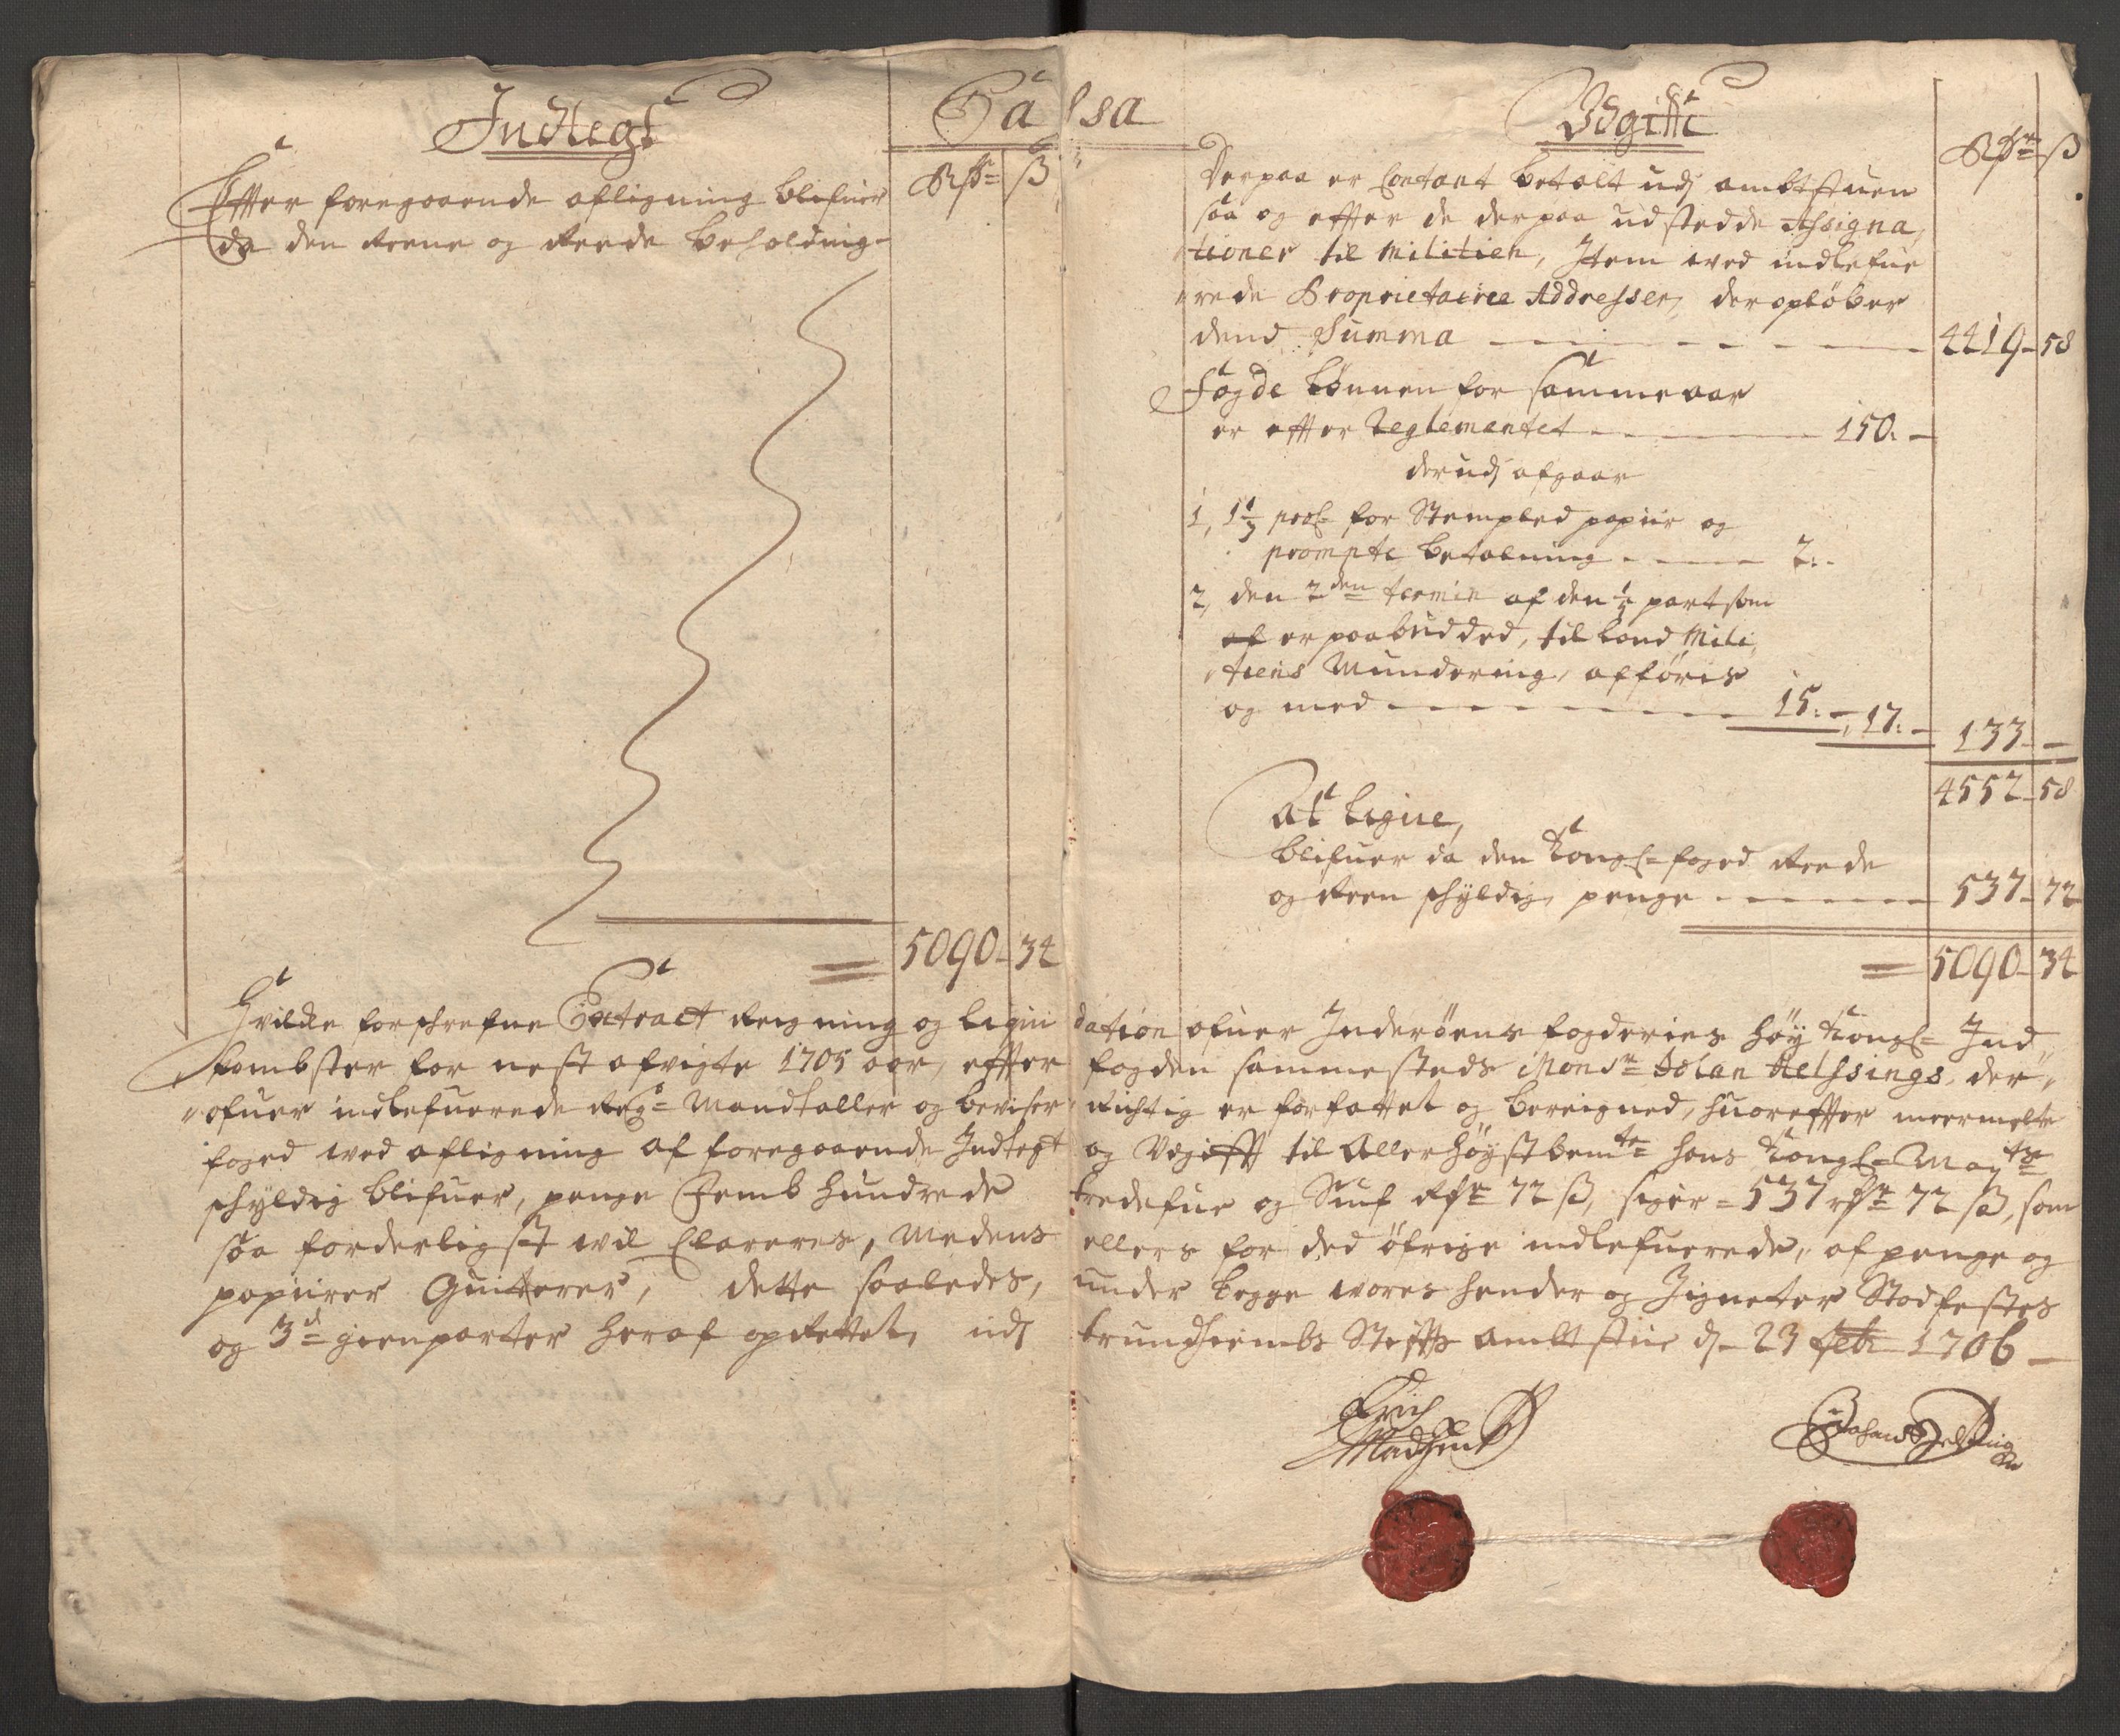 Indtegt
Cassa
Rdr ß
Effter foregaaende afligning blifuer
da den Reene og Reede beholdning
5090 - 34
Udgifft
Rdr ß
Derpaa er Contant betalt udj ambtstuen
saa og effter de derpaa udstedde Assigna
tioner til Militien, Item wed indlefue
rede Proprietairer Addresser, der opløber
dend Summa 4419 - 58
Fogde Lønnen for samme aar
er effter Reglementet 150. -
derudj afgaar
1, 1 1/3 proc= for Stempled papiir og
prompte betalning 2. -
2, den 2den termin af den 1/5 part som
af er paabudded, til Land Mili
tiens Mundering, afføris
og med 15. - 17. - 133 -
4552 - 58
At ligne,
blifuer da den Kongl= foged Reede
og Reen schyldig, penge 537 - 72
5090 - 34
Hvilke forschrefne Extract Reigning og liqui dation ofuer Inderøens fogderies høy Kongl= Ind
kombster for nest afvigte 1705 aar, effter fogden sammesteds Monsr Johan Helssings, der
ofuer indlefuerede Reg= Mandtaller og beviser Richtig er forfattet og bereigned, huoreffter meermelte
foged wed afligning af foregaaende Indtegt og Udgifft til Allerhøystbemte hans Kongl= Mayts
schyldig blifuer, penge Femb hundrede tredefue og Siuf Rdr 72 ß, siger = 537 rdr 72 ß, som
saa forderligst wil Clareres, Medens ellers for ded øfrige indlefuerede, af penge og
papiirer Quitterer, dette saaledes, under begge wores hender og Zigneter Stadfestes
og 3de gienparter heraf oprettet, udj trundhiembs Stiffts ambtstue d. 23 Feb: 1706
Erich Madsen
Johan Helssing